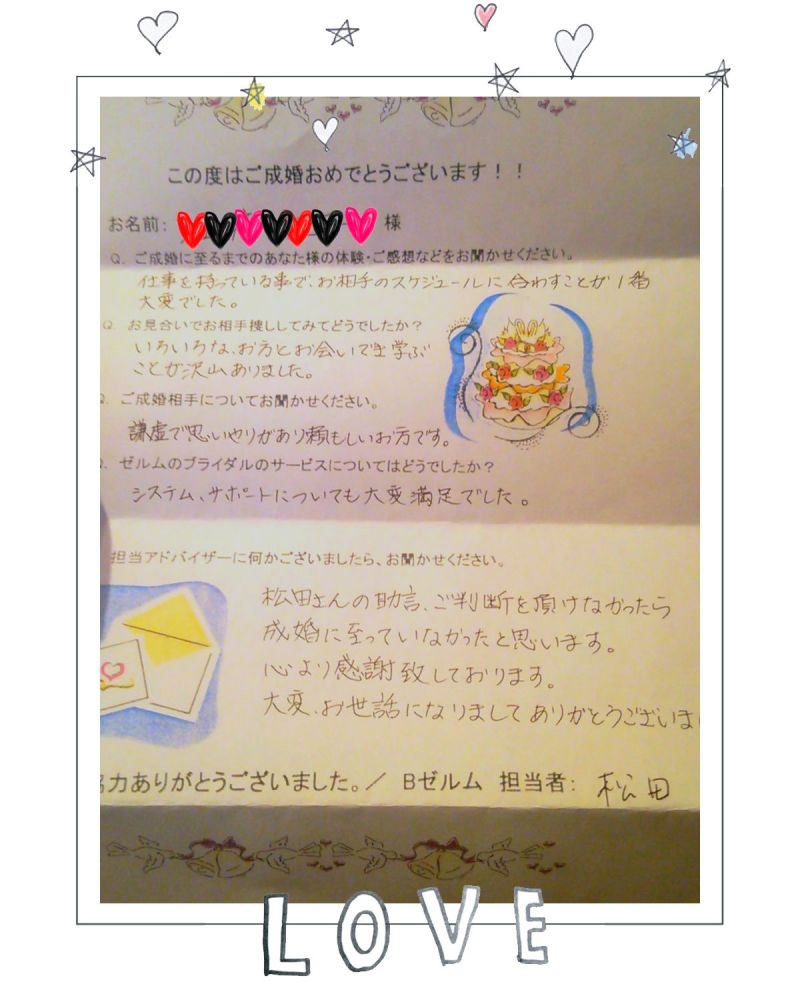 この度はご成婚おめでとうございます！！
お名前： 様
Q. ご成婚に至るまでのあなた様の体験・ご感想などをお聞かせください。
仕事を持っている事で、お相手のスケジュールに合わすことが1番
大変でした。
Q. お見合いでお相手捜ししてみてどうでしたか？
いろいろな、お方とお会いでき学ぶ
ことが沢山ありました。
Q. ご成婚相手についてお聞かせください。
謙虚で思いやりがあり頼もしいお方です。
Q. ゼルムのブライダルのサービスについてはどうでしたか？
システム、サポートについても大変満足でした。
担当アドバイザーに何かございましたら、お聞かせください。
松田さんの助言、ご判断を頂けなかったら
成婚に至っていなかったと思います。
心より感謝致しております。
大変、お世話になりましてありがとうございま
力ありがとうございました。／ Bゼルム 担当者： 松田
LOVE